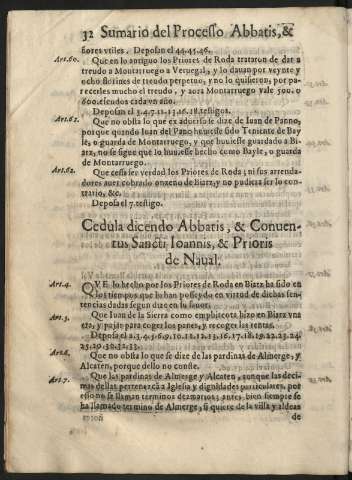 32 Sumario del Processo Abbatis, &
ñores vtiles. Deposan el 44.45.46.
Art.60. Que en lo antiguo los Priores de Roda trataron de dar a
treudo a Montarruego a Veruegal, y lo dauan por veynte y
ocho florines de treudo perpetuo, y no lo quisieron, por pa-
recerles mucho el treudo, y aora Montarruego vale 500. o
600. escudos cada vn año.
Deposan el 3.4.7.11.13.16.18. testigos.
Art.61. Que no obsta lo que ex aduerso se dize de Iuan de Panno,
porque quando Iuan del Pano huuiesse sido Teniente de Bay
le, o guarda de Montarruego, y que huuiesse guardado a Bi-
arz, no se sigue que lo huuiesse hecho como Bayle, o guarda
de Montarruego.
Art.62. Que cessa ser verdad los Priores de Roda; ni sus arrenda-
dores auer cobrado onzeno de Biarz, y no pudiera ser lo con-
trario, &c.
Deposa el 7. testigo.
Cedula dicendo Abbatis, & Conuen-
tus Sancti Ioannis, & Prioris
de Naual.
Art.4. QVE lo hecho por los Priores de Roda en Biarz ha sido en
los tiempos que lo han posseydo en virtud de dichas sen-
tencias dadas segun dize en la suso.
Art.5. Que Iuan de la Sierra como emphiteota hizo en Biarz vna
era, y pajar para coger los panes, y recoger las rentas.
Deposa el 2.3.4.5.6.9.10.11.12.13.15.16.17.18.19.22.23.24.
25.29.30.32.33.
Art.6. Que no obsta lo que se dize de las pardinas de Almerge, y
Alcaten, porque dello no consta.
Art.7. Que las pardinas de Almerge y Alcaten, aunque las deci-
mas dellas pertenezcã a Iglesia y dignidades particulares, por
esso no se llaman terminos dezmarios; antes bien siempre se
ha llamado termino de Almerge, si quiere de la villa y aldeas
de